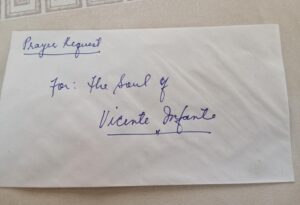 Prayer Request
For: the Soul of
Vicente Infante